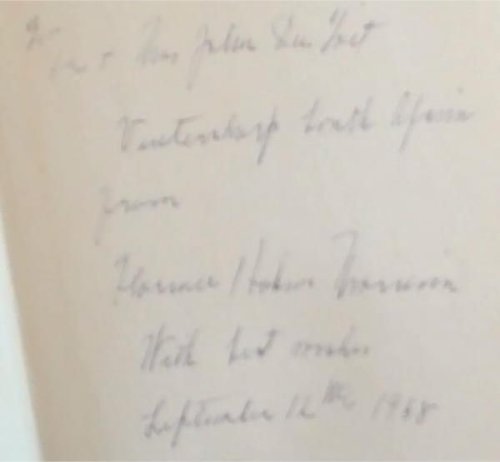 To
Mr + Mrs John Du Toit
Ventersdorp South Africa
From
Florence Hobson Morrison
With best wishes
September 12th 1958